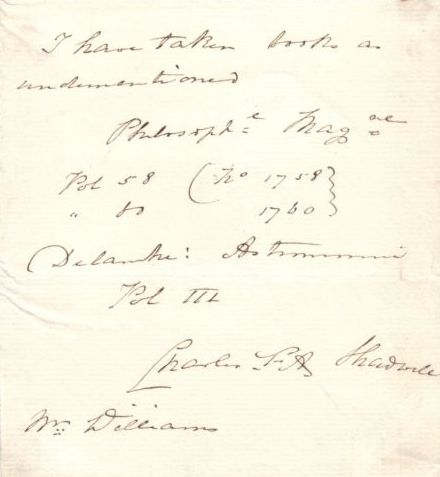 I have taken books as
undermentioned
Philosoph:e Mag:ne
Vol 58 (No 1758}
" 60 1760}
Delambre: Astronomie
Vol III
Charles F. A. Shadwell
Mr. Williams